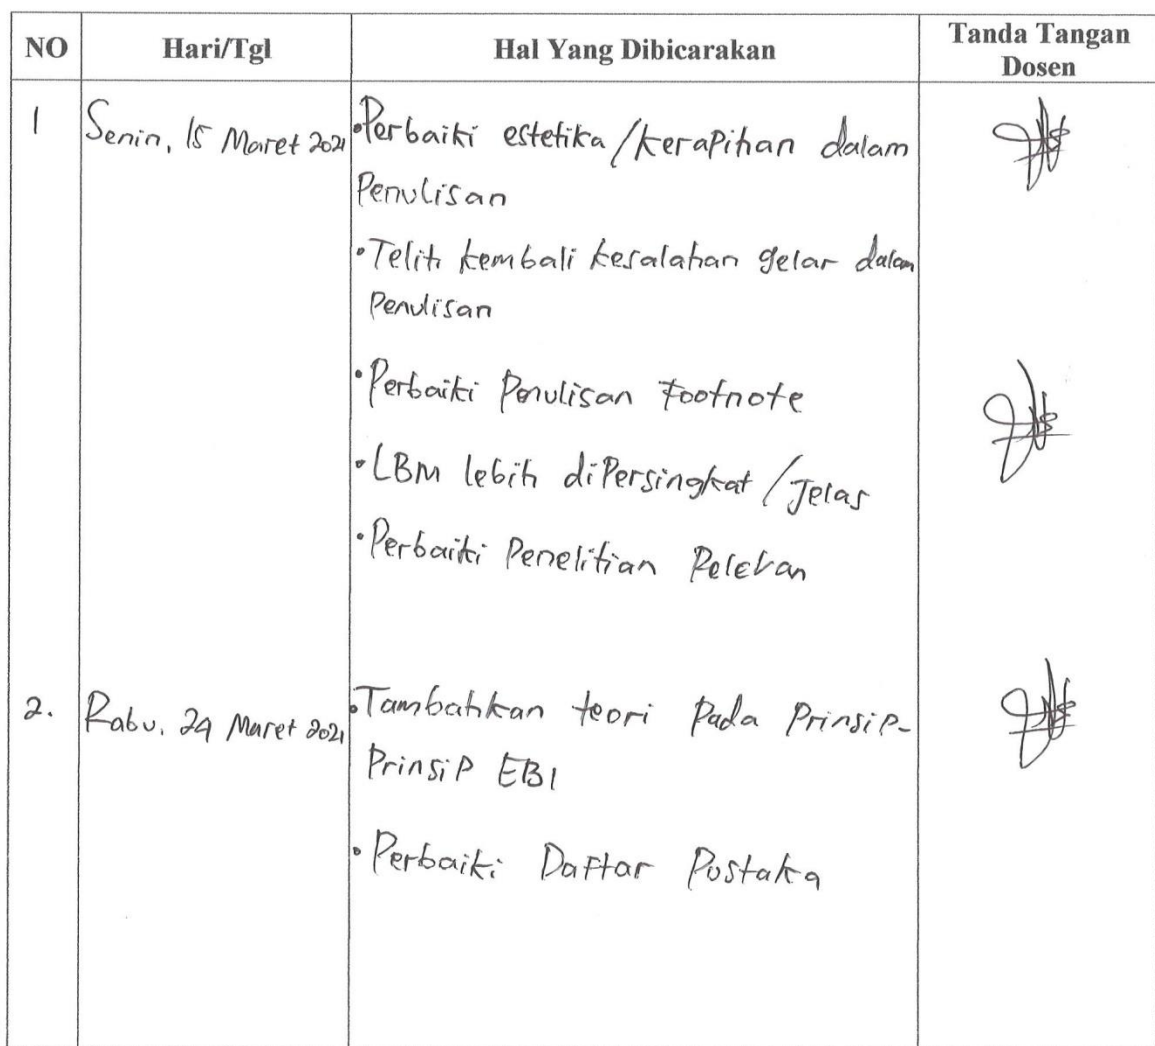 NO Hari/Tgl Hal Yang Dibicarakan Tanda Tangan Dosen
1 Senin, 15 Maret 2021 •Perbaiki estetika/kerapihan dalam
Penulisan
•Teliti kembali kesalahan gelar dalam
Penulisan
•Perbaiki Penulisan Footnote
•LBM lebih diPersingkat/Jelas
•Perbaiki Penelitian Relevan
2. Rabu, 24 Maret 2021 •Tambahkan teori Pada Prinsip-
Prinsip EBI
•Perbaiki Daftar Pustaka